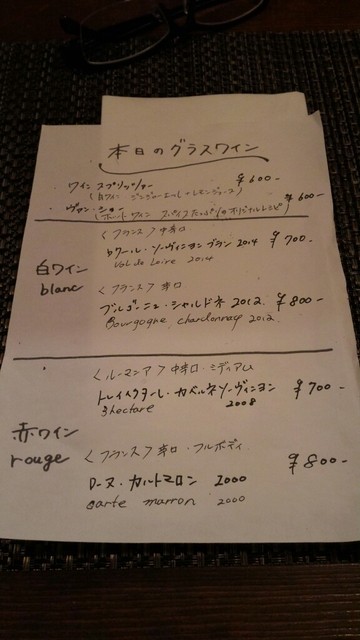 本日のグラスワイン
ワインスプリッツァー ¥600-
(白ワイン ジンジャーエール レモンジュース)
ヴァン・ショー ¥600-
(ホットワイン スパイスたっぷりのオリジナルレシピ)
白ワイン
blanc
〈フランス〉中辛口
ロワール・ソーヴィニヨンブラン 2014 ¥700-
Val de Loire 2014
〈フランス〉辛口
ブルゴーニュ・シャルドネ 2012 ¥800-
Bourgogne chardonnay 2012
赤ワイン
rouge
〈ルーマニア〉中辛口・ミディアム
トレイ・クターレ・カベルネソーヴィニヨン ¥700-
3hectare 2008
〈フランス〉辛口・フルボディ
ローヌ・カルトマロン 2000 ¥800-
carte marron 2000